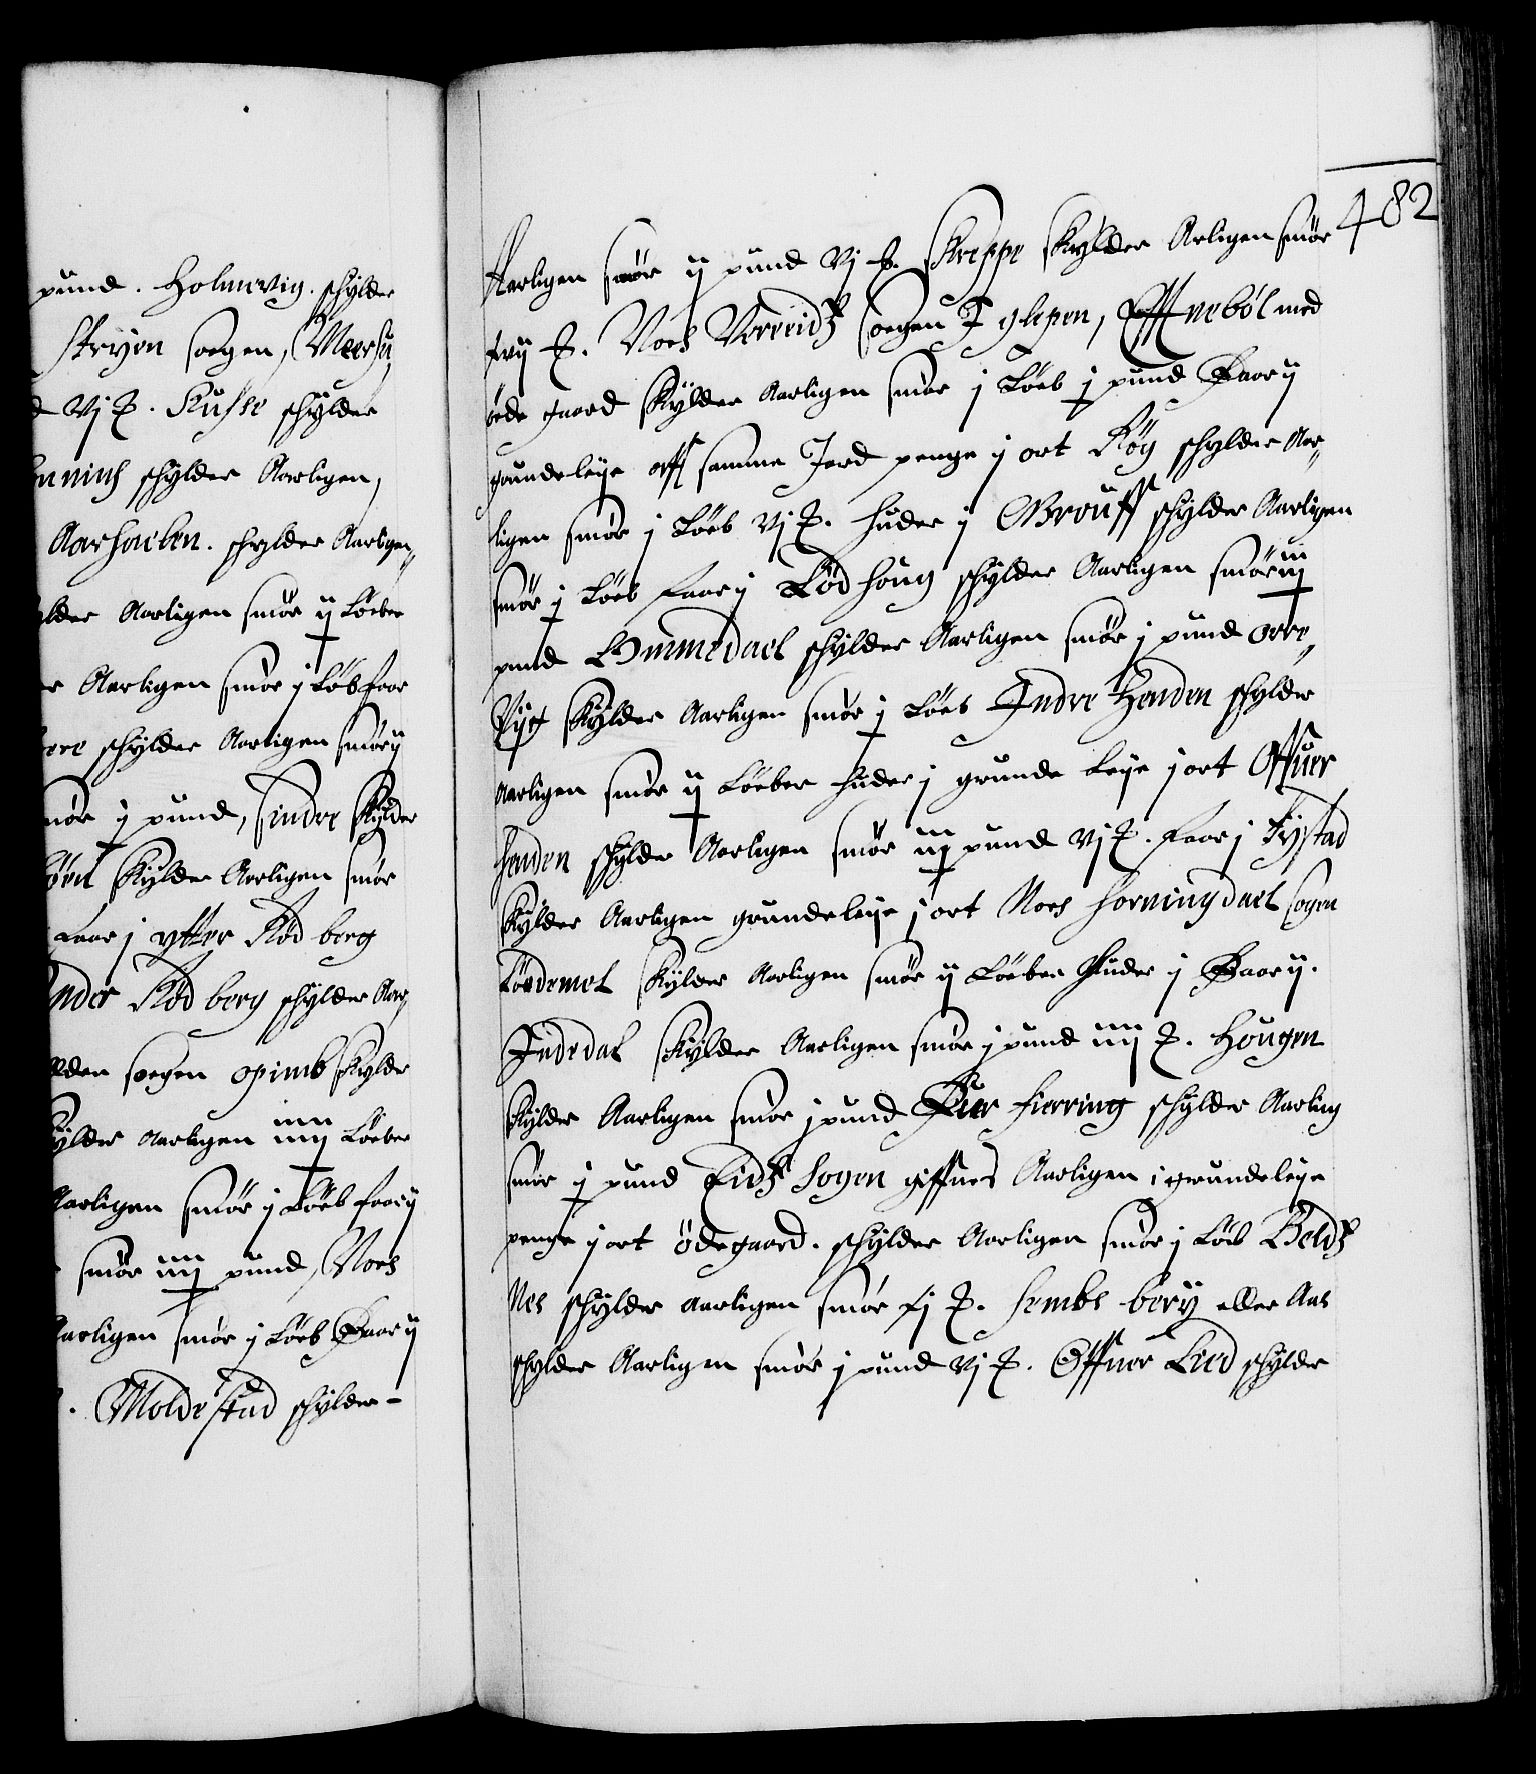 pund. Holmevig. schylder
Stryen soegen, Meershu
d vj ℔. Kusse schylder
unings schylder Aarligen,
Aarhaeben. schylder Aarligen
ylder Aarligen smör ij Löeber
er Aarligen smör j Löb faar
ore schylder Aarligen smör ij
mör j pund, sindre Skylder
örel skylder Aarligen smör
faar j ytter Röd berg
nder Röd berg schylder Aar
lden soegen opimb skylder
kylder Aarligen iiij Löeber
Aarligen smör j Löeb faar ij
smör iiij pund, Noes
Aarligen smör j Löeb Faar ij
. Moldestad schylder-
482
Aarligen smör ij pund vj ℔. Skreppe skylder Arligen smör
xvij ℔. Noes Verreidz soegen I glepen, Effnebôl med
öde gaard skylder Aarligen smör j Löeb j pund Faar ij
grundeleije aff samme Jord penge j ort Röy schylder Aar
ligen smör j Löeb vj ℔. huder j Grouff schylder Aarligen
smör j Löeb faar j Lödhoug schylder Aarligen smör iij
pund Ommedael schylder Aarligen smör j pund orre
Vijg skylder Aarligen smör j Löeb Indre Henden schylder
Aarligen smör ij Löeber huder j grunde leije j ort Offuer
henden schylder Aarligen smör iij pund vj ℔. faar j Tystad
skylder Aarligen grundeleije j ort Noes Horningdael sogen
Löedemel skylder Aarligen smör ij Löeber huder j Faar ij.
Indedal skylder Aarligen smör j pund iiij ℔. Hougen
skylder Aarligen smör j pund Fur fierring schylder Aarlig
smör j pund Eidz Sogen giffues Aarligen i grundeleije
penge j ort ödegaard. schylder Aarligen smör j Löb Beldz
Nes schylder aarligen smör xj ℔. Sembs berg eller Aas
schylder Aarligen smör j pund vj ℔. Offuer Lied schylder